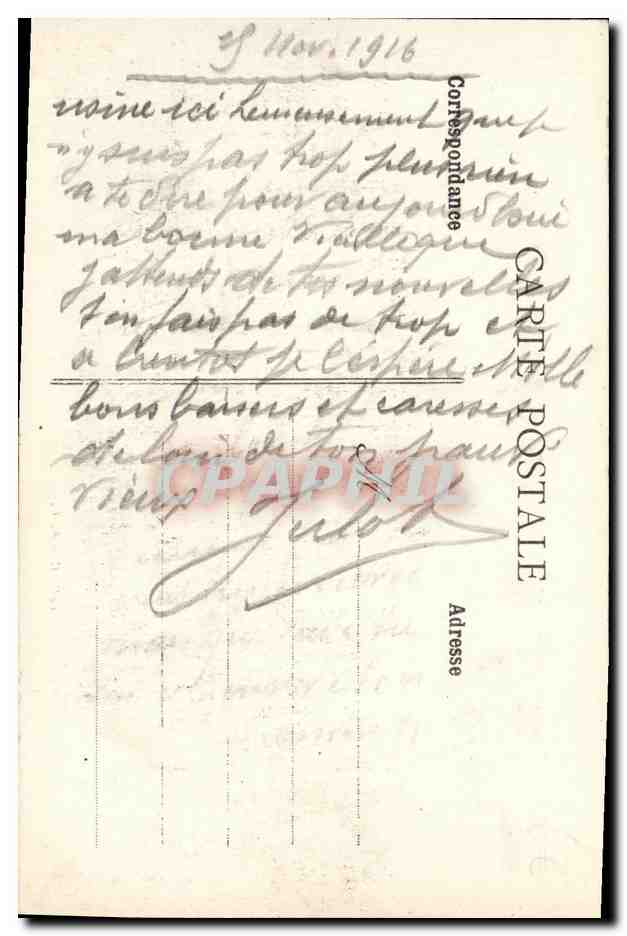 Nov. 1916
usine ici heureusement que je
n'y suis pas trop plus rien
a te dire pour aujourd'hui
ma bonne
j'attends de tes nouvelles
t'en fais pas de trop et
a bientot je l'éspère Mille
bons baisers et caresses
de loin de ton pauv
vieux Julot
CARTE POSTALE
Correspondance
Adresse
M
CPAPHIL